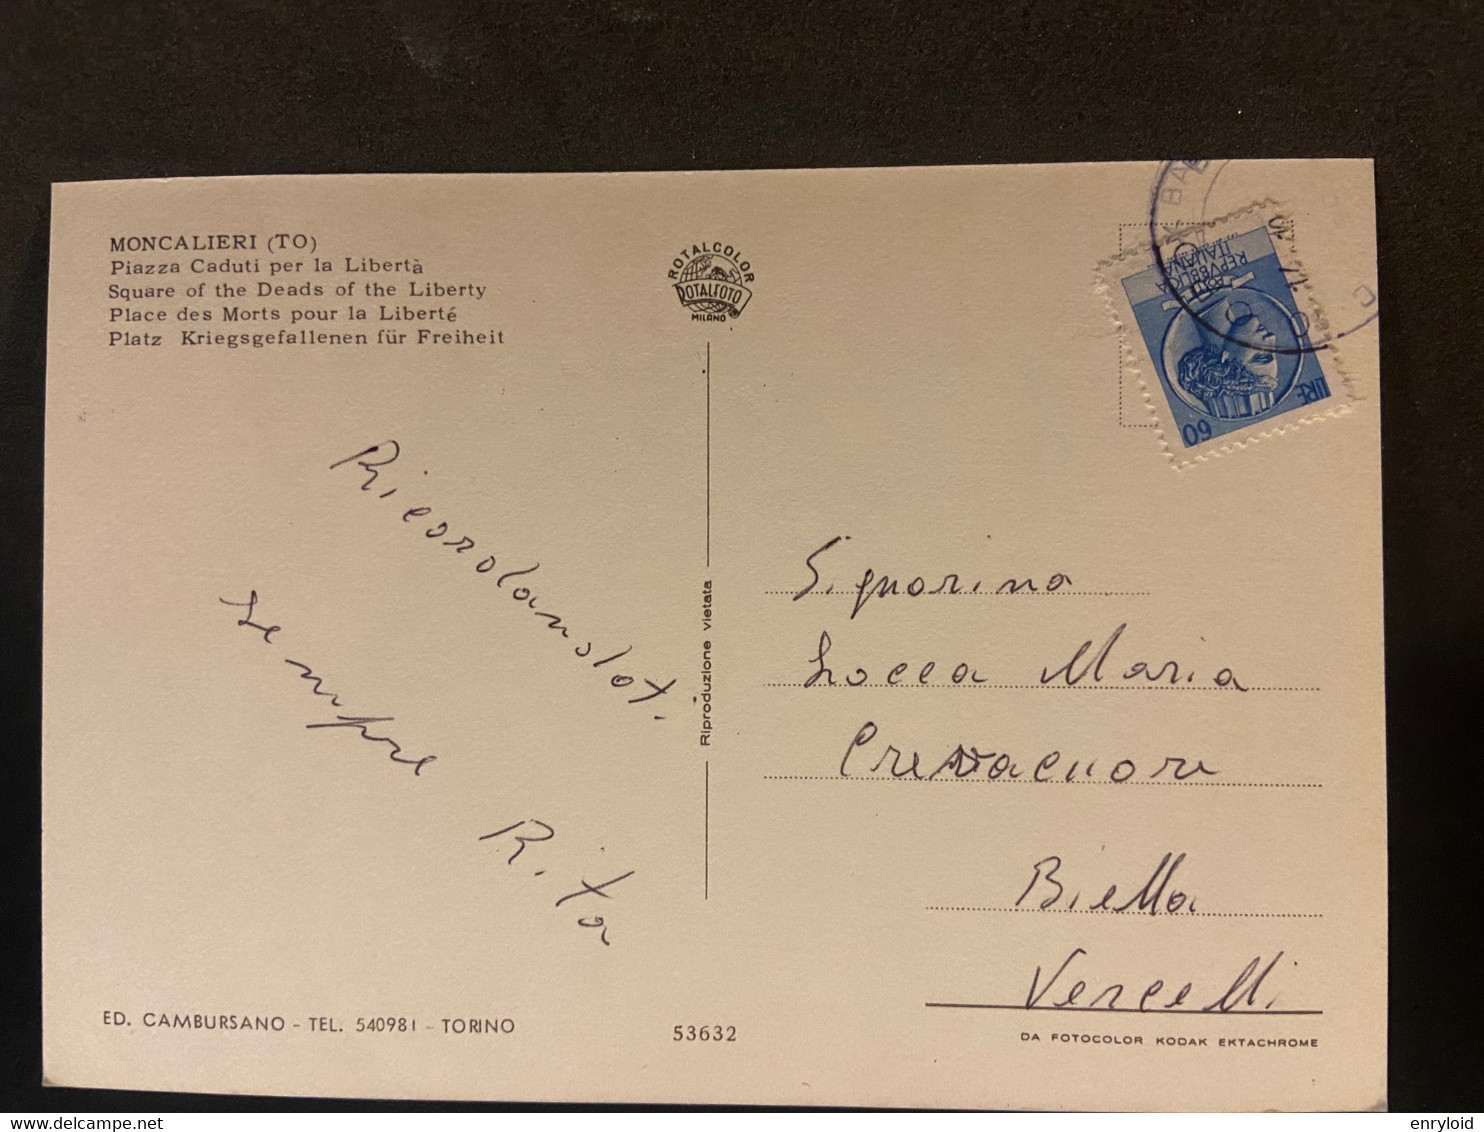 MONCALIERI (TO)
Piazza Caduti per la Libertà
Square of the Deads of the Liberty
Place des Morts pour la Liberté
Platz Kriegsgefallenen für Freiheit
ROTALCOLOR
ROTALFOTO
MILANO
POSTE
REPVBBLICA
ITALIANA
LIRE
60
Ricordandot.
Sempre
Rita
Riproduzione vietata
Signorina
Locca Maria
Crevacuore
Biella
Vercelli
ED. CAMBURSANO - TEL. 540981 - TORINO
53632
DA FOTOCOLOR KODAK EKTACHROME
enryloid
delcampe.net